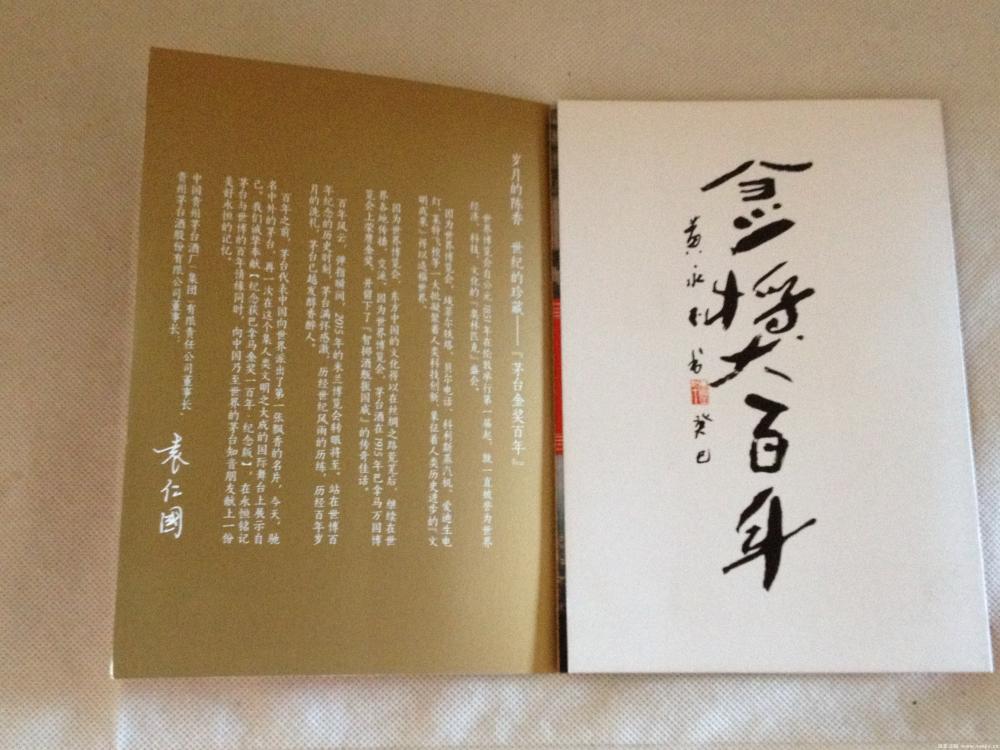 岁月的陈香　世纪的珍藏——『茅台金奖百年』
世界博览会自公元1851年在伦敦举行第一届起，就一直被誉为世界
经济、科技、文化的『奥林匹克』盛会。
因为世界博览会，埃菲尔铁塔、贝尔电话、科利斯蒸汽机、爱迪生电
灯、莱特飞机等一大批凝聚着人类科技创新、象征着人类历史进步的『文
明成果』得以造福世界。
因为世界博览会，东方中国的文化得以在丝绸之路荒芜后，继续在世
界各地传播、交流。因为世界博览会，茅台酒在1915年巴拿马万国博
览会上荣膺金奖，并留下了『智掷酒瓶振国威』的传奇佳话。
百年风云，弹指瞬间，2015年的米兰博览会转眼将至。站在世博百
年纪念的历史时刻，茅台满怀感激。历经世纪风雨的历练，历经百年岁
月的洗礼，茅台已越发醇香醉人。
百年之前，茅台代表中国向世界派出了第一张飘香的名片，今天，驰
名中外的茅台，再一次在这个集人类文明之大成的国际舞台上展示自
己。我们诚挚奉献【纪念获巴拿马金奖一百年·纪念版】，在永恒铭记
茅台与世博的百年情缘同时，向中国乃至世界的茅台知音朋友献上一份
美好永恒的记忆。
中国贵州茅台酒厂（集团）有限责任公司董事长、
贵州茅台酒股份有限公司董事长：
袁仁國
金奖百年
黄永 书
癸巳